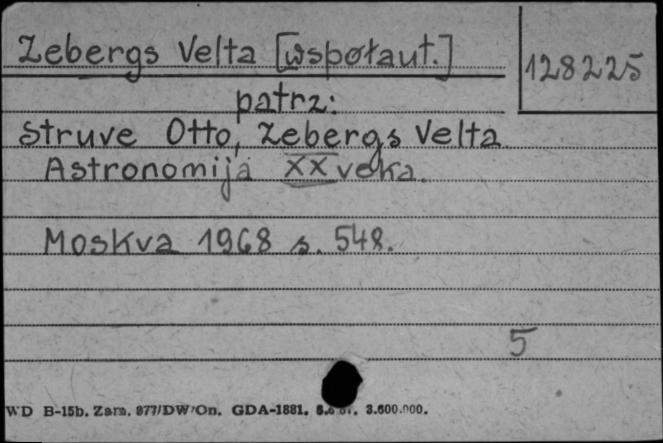 Zebergs Velta [współaut.]
128225
patrz:
Struve Otto, Zebergs Velta
Astronomija XX veka.
Moskva 1968 s. 548.
5
WD B-15b. Zam. 877/DW/On. GDA-1881. 3.600.000.